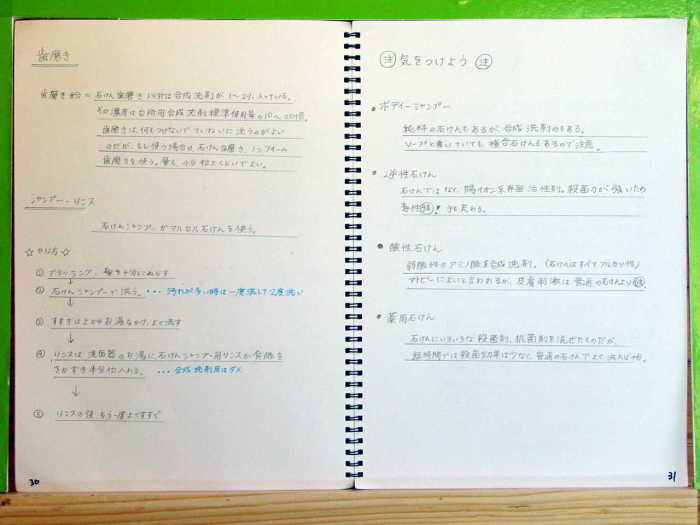 歯磨き
歯磨き粉 = 石けん歯磨き以外は合成洗剤が1~2%入っている。
その濃度は台所用合成洗剤標準使用量の
歯磨きは、何もつけないで ていねいに洗うのがよい
のだが、もし使う場合は、石けん歯磨き、ノンフォームの
歯磨きを使う。量も、小豆粒くらいでよい。
シャンプー・リンス
石けんシャンプーかマルセル石けんを使う。
☆やり方☆
① ブラッシング、髪を十分にぬらす
② 石けんシャンプーで洗う。 ・・・汚れが多い時は一度流して2度洗い
③ すすぎは上からお湯をかけ、よく流す
④ リンスは洗面器のお湯に石けんシャンプー用リンスか食酢を
さかずき半分位入れる。 ・・・合成洗剤用はダメ
⑤ リンスの後 もう一度よくすすぐ
30
注 気をつけよう 注
・ボディーシャンプー
純粋の石けんもあるが、合成洗剤のもある。
ソープと書いていても、複合石けんもあるので注意。
・逆性石けん
石けんではなく、陽イオン系界面活性剤。殺菌力が強いため
毒性強! 手も荒れる。
・酸性石けん
弱酸性のアミノ酸系合成洗剤。(石けんはすべてアルカリ性)
アトピーによいと言われるが、皮膚刺激は普通の石けんより強
・薬用石けん
石けんにいろいろな殺菌剤、抗菌剤を混ぜたものだが、
短時間では殺菌効果は少なく、普通の石けんでよく洗えばOK。
31